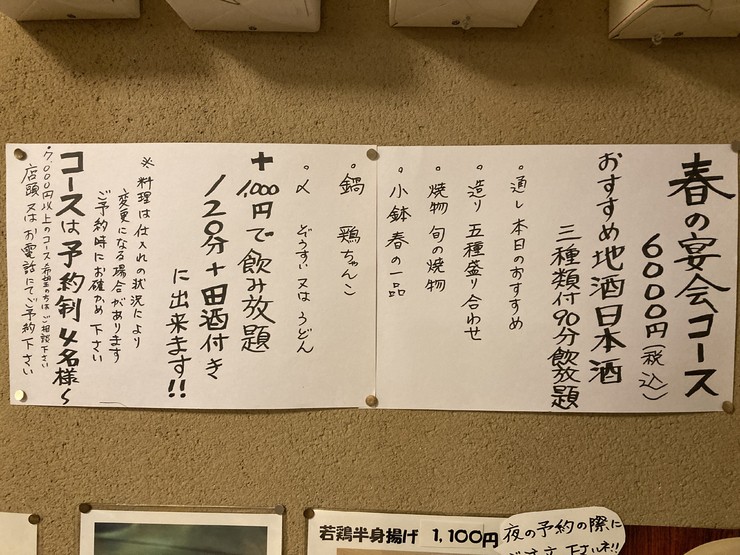 春の宴会コース
6000円(税込)
おすすめ地酒日本酒
三種類付90分飲放題
。通し 本日のおすすめ
。造り 五種盛り合わせ
。焼物 旬の焼物
。小鉢 春の一品
。鍋 鶏ちゃんこ
。〆 ぞうすい又はうどん
+1,000円で飲み放題
120分+田酒付き
に出来ます!!
※料理は仕入れの状況により
変更になる場合があります
ご予約時にお確かめ下さい
コースは予約制4名様〜
・7,000円以上のコース希望の方はご相談下さい
店頭又はお電話にてご予約下さい
若鶏半身揚げ 1,100円
夜の予約の際に
下さいネ!!